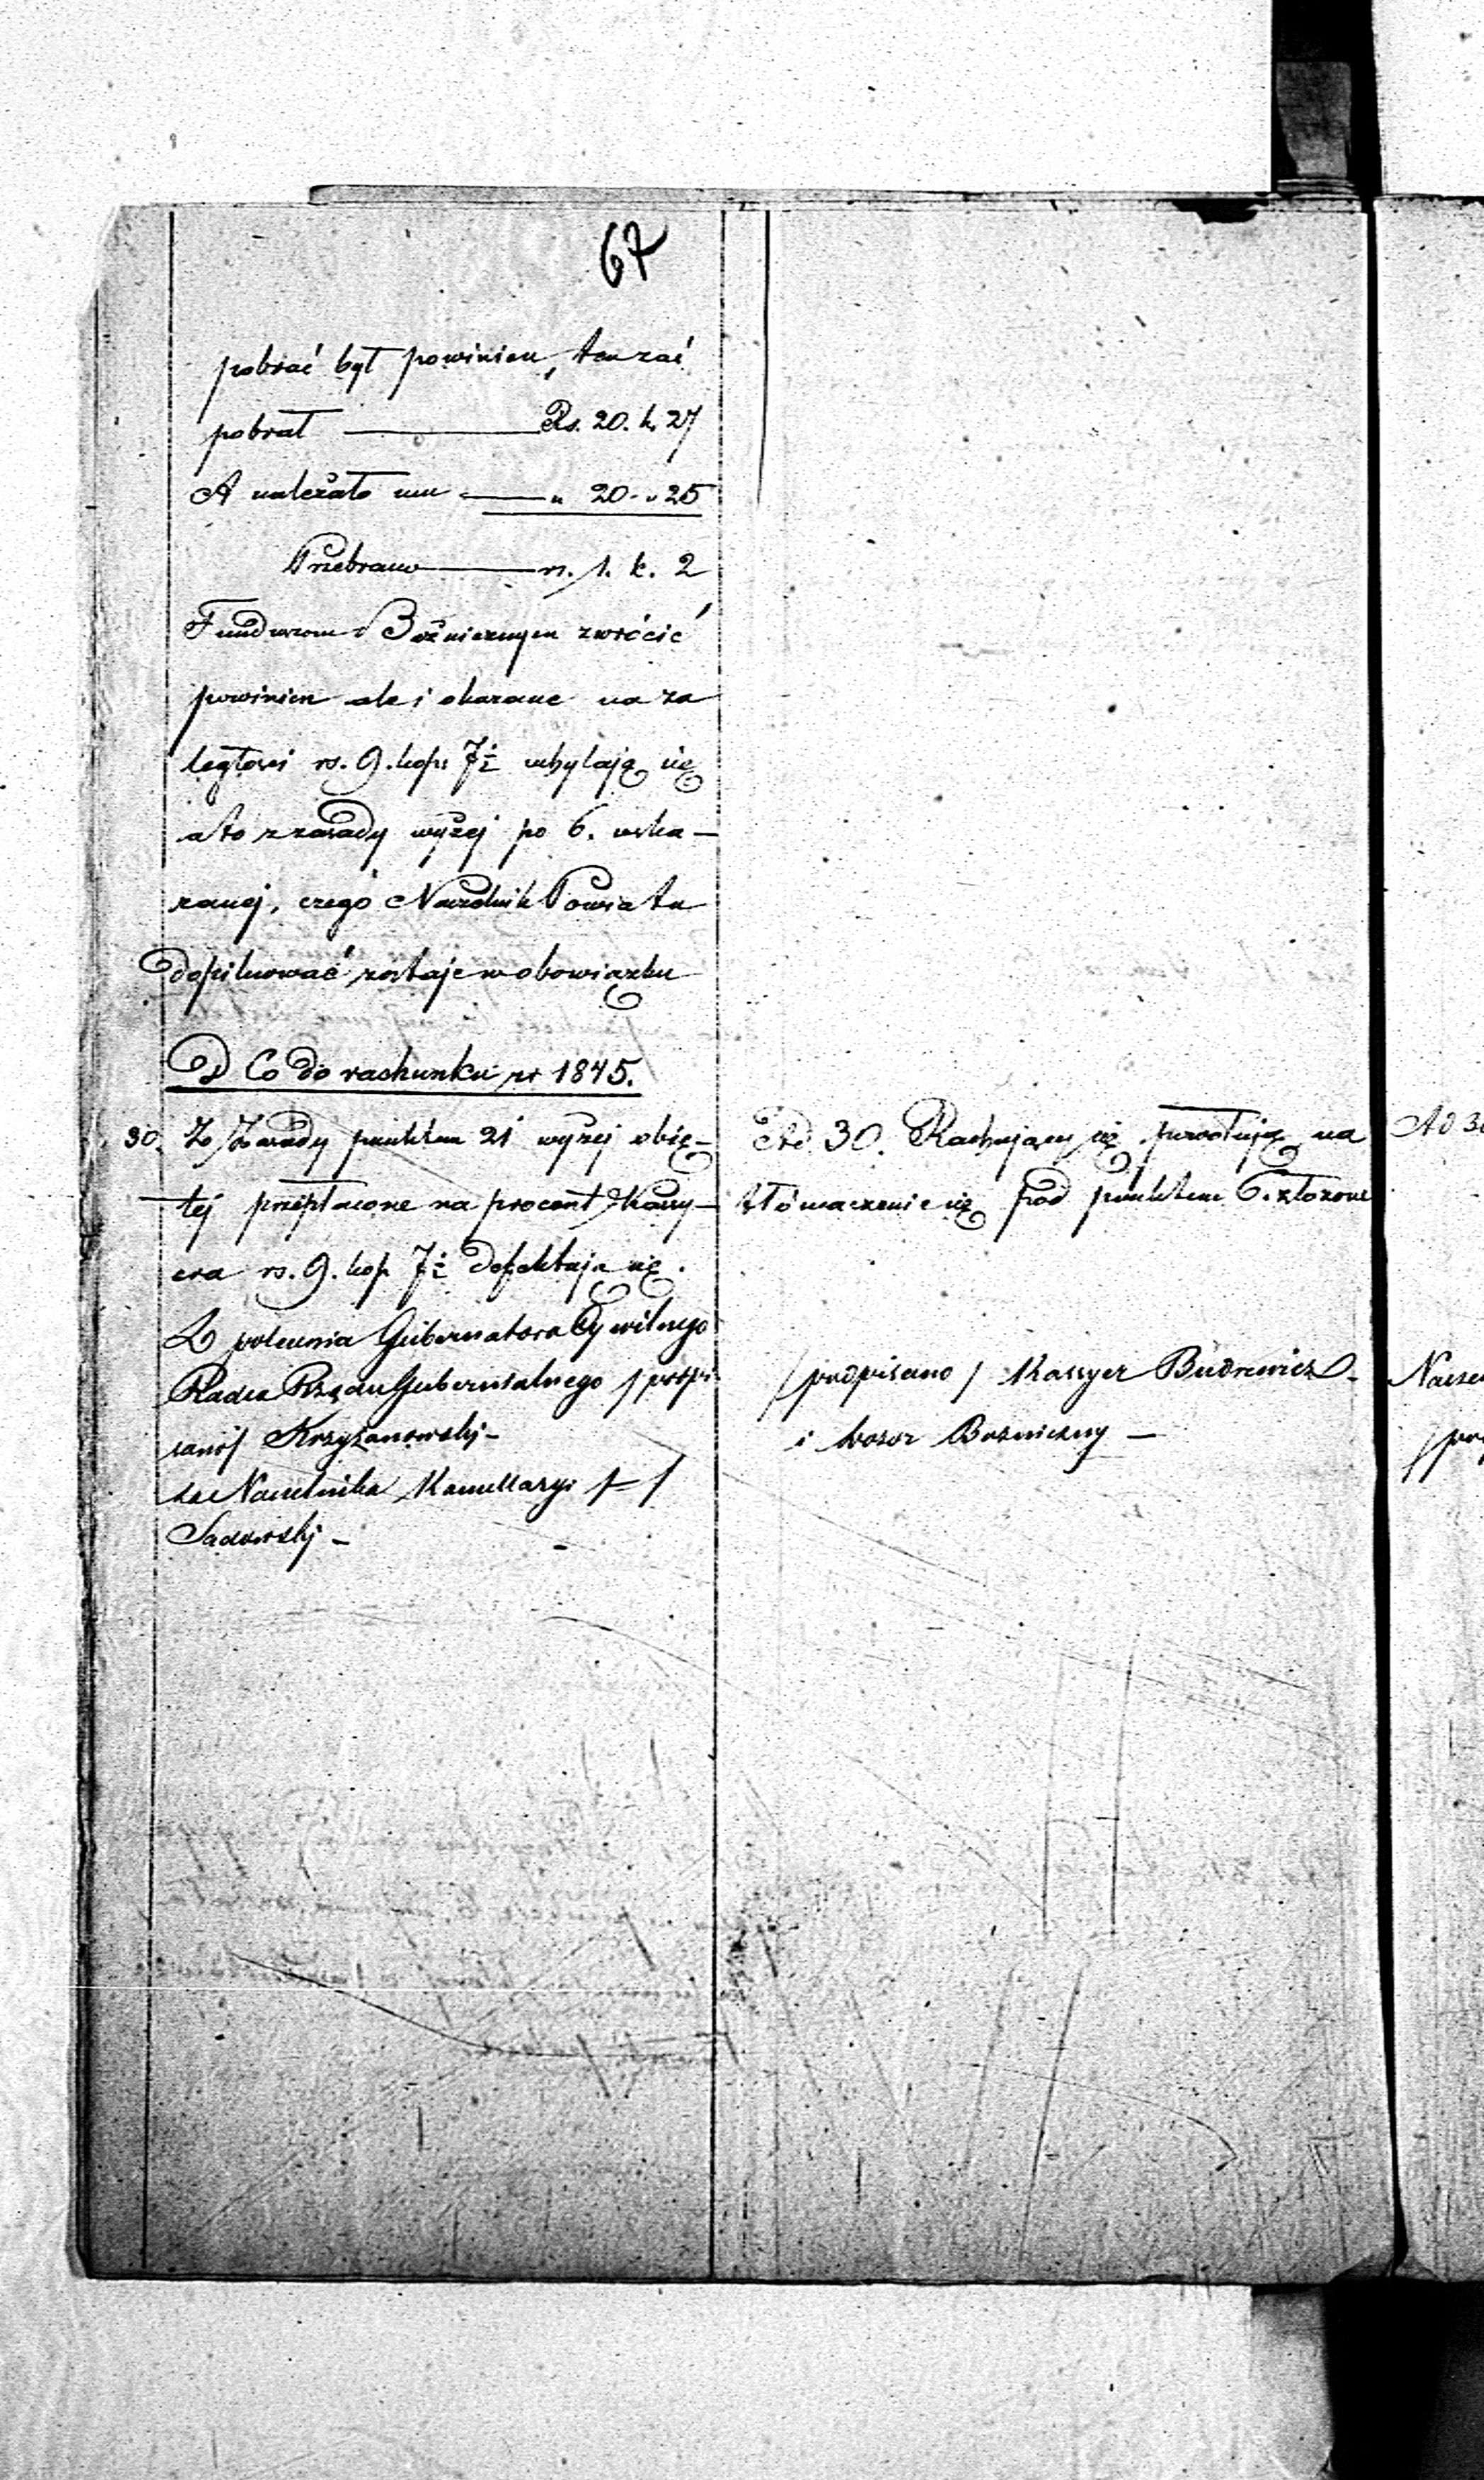 67
pobrać był powinien, ten zaś
pobrał ——— Rs. 20. k. 27
A należało mu ——— „ 20 - „ 25
Przebrano ——— rs. 1. k. 2
Funduszom Bożnicznym zwrócić
powinien ale i okazane na za
ległości rs. 9. kop. 7½ uchylają się
a to z zasady wyżej po 6. wska-
zanej, czego Naczelnik Powiatu
dopilnować zostaje w obowiązku
D Co do rachunku zr 1845.
30. Z Zasady punktem 21 wyżej obię-
tej przepłacone na procent Kassy-
era rs. 9. kop 7½ defektują się.
Z polecenia Gubernatora Cywilnego
Radca Rządu Gubernialnego /podpi-
sano/ Krzyżanowski -
za Naczelnika Kancellaryi /-/
Sadowski -
Ad 30. Rachujący się powołują na
tłómaczenie się pod punktem 6. złożone
/podpisano/ Kassyer Budrewicz -
i Dozor Bożniczny —
Ad 30